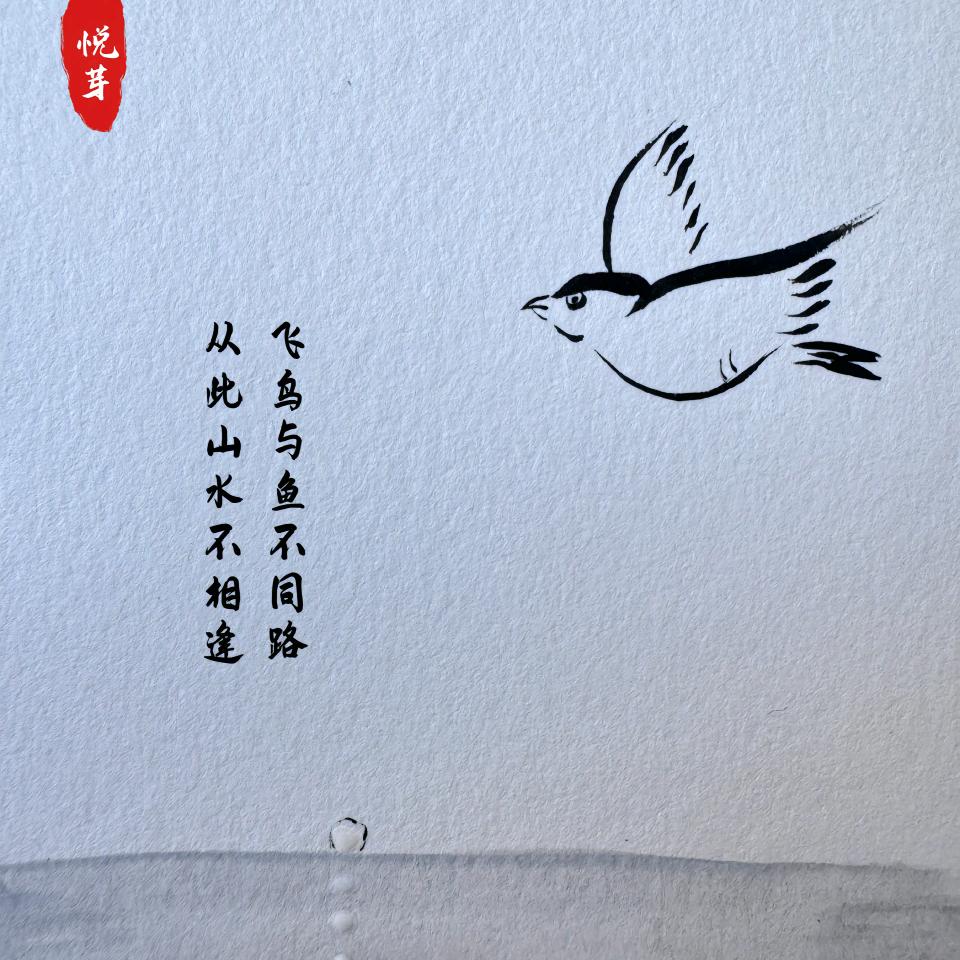 悦芽
飞鸟与鱼不同路
从此山水不相逢